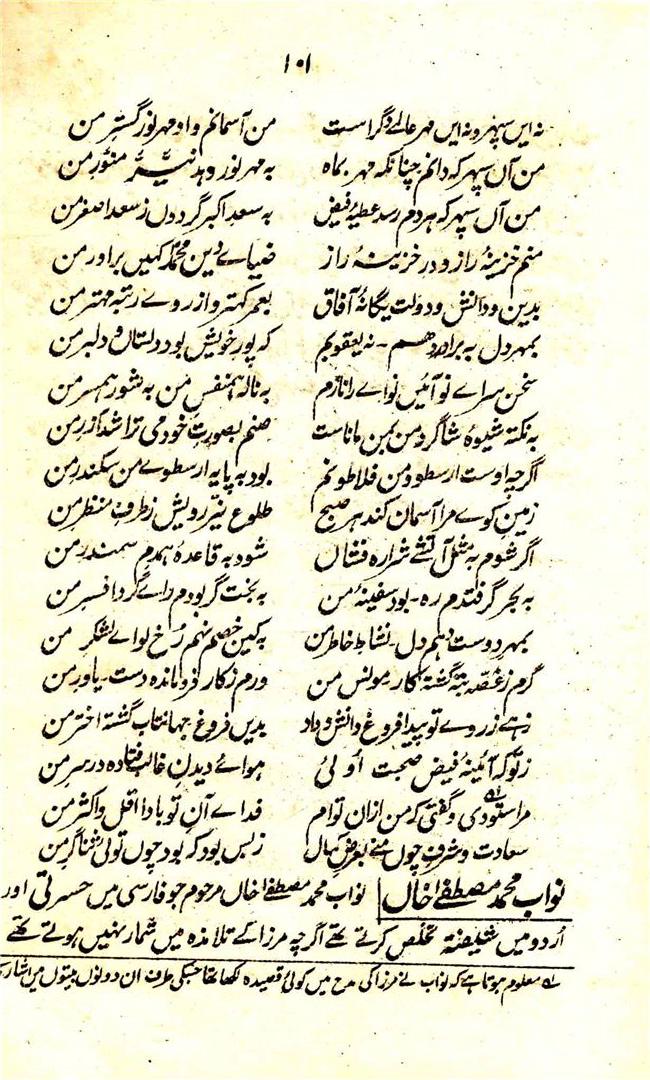 ۱۰۱
نہ ایں سپہر و نہ ایں مہر عالمے دگر است من آسمانم و او مہر نور گستر من
من آں سپہر کہ دانم چنانکہ مہر بماہ بہ مہر نور دہد نیّر منوّر من
من آں سپہر کہ ہر دم رسد عطیۂ فیض بہ سعد اکبر گردوں ز سعد اصغر من
منم خزینۂ راز و در خزینۂ راز ضیاے دین محمد کہیں برادر من
بدین و دانش و دولت یگانۂ آفاق بعمر کہتر و از روے رتبہ مہتر من
بمہر دل بہ برادر دہم ۔ نہ یعقوبم کہ پور خویش بود دلستان و دلبر من
سخن سراے نو آئیں نواے را نازم بہ نالہ ہمنفس من بہ شور ہمسر من
بہ نکتہ شیوۂ شاگرد من بمن ماناست صنم بصورت خود می تراشد آزر من
اگرچہ اوست ارسطو و من فلاطونم بود بہ پایہ ارسطوے من سکندر من
زمین کوے مرا آسمان کند ہر صبح طلوع نیّر رویش ز طرف منظر من
اگر شوم بہ مثل آتشے شرارہ فشاں شود بہ قاعدہ ہمدم سمندر من
بہ بحر گر فتدم رہ ۔ بود سفینۂ من بہ بخت گر بودم راے گردد افسر من
بمہر دوست دہم دل ۔ نشاط خاطر من بہ کین خصم نہم رُخ لواے لشکر من
گرم ز غصّہ بتہ گشتہ کار مونس من ورم ز کار فروماندہ دست ۔ یاور من
زہے ز روے تو پیدا فروغ دانش و داد بدیں فروغ جہانتاب گشتہ اختر من
ز تو کہ آئینۂ فیض صحبت اُولیٰ ہواے دیدن غالب فتادہ در سر من
مرا ستودی و گفتی کہ من ازان توام ۵۱ فداے آن تو باد اقل و اکثر من
سعادت و شرف چوں منے بعرض کمال ز بس بود کہ بود چوں توئی ثناگر من
نواب محمد مصطفےٰ خاں | نواب محمد مصطفےٰ خاں مرحوم جو فارسی میں حسرتی اور
اُردو میں شیفتہ تخلص کرتے تھے اگرچہ مرزا کے تلامذہ میں شمار نہیں ہوتے تھے
۵۱ معلوم ہوتا ہے کہ نواب نے مرزا کی مدح میں کوئی قصیدہ لکھا تھا جسکی طرف ان دونوں بیتوں میں اشارہ